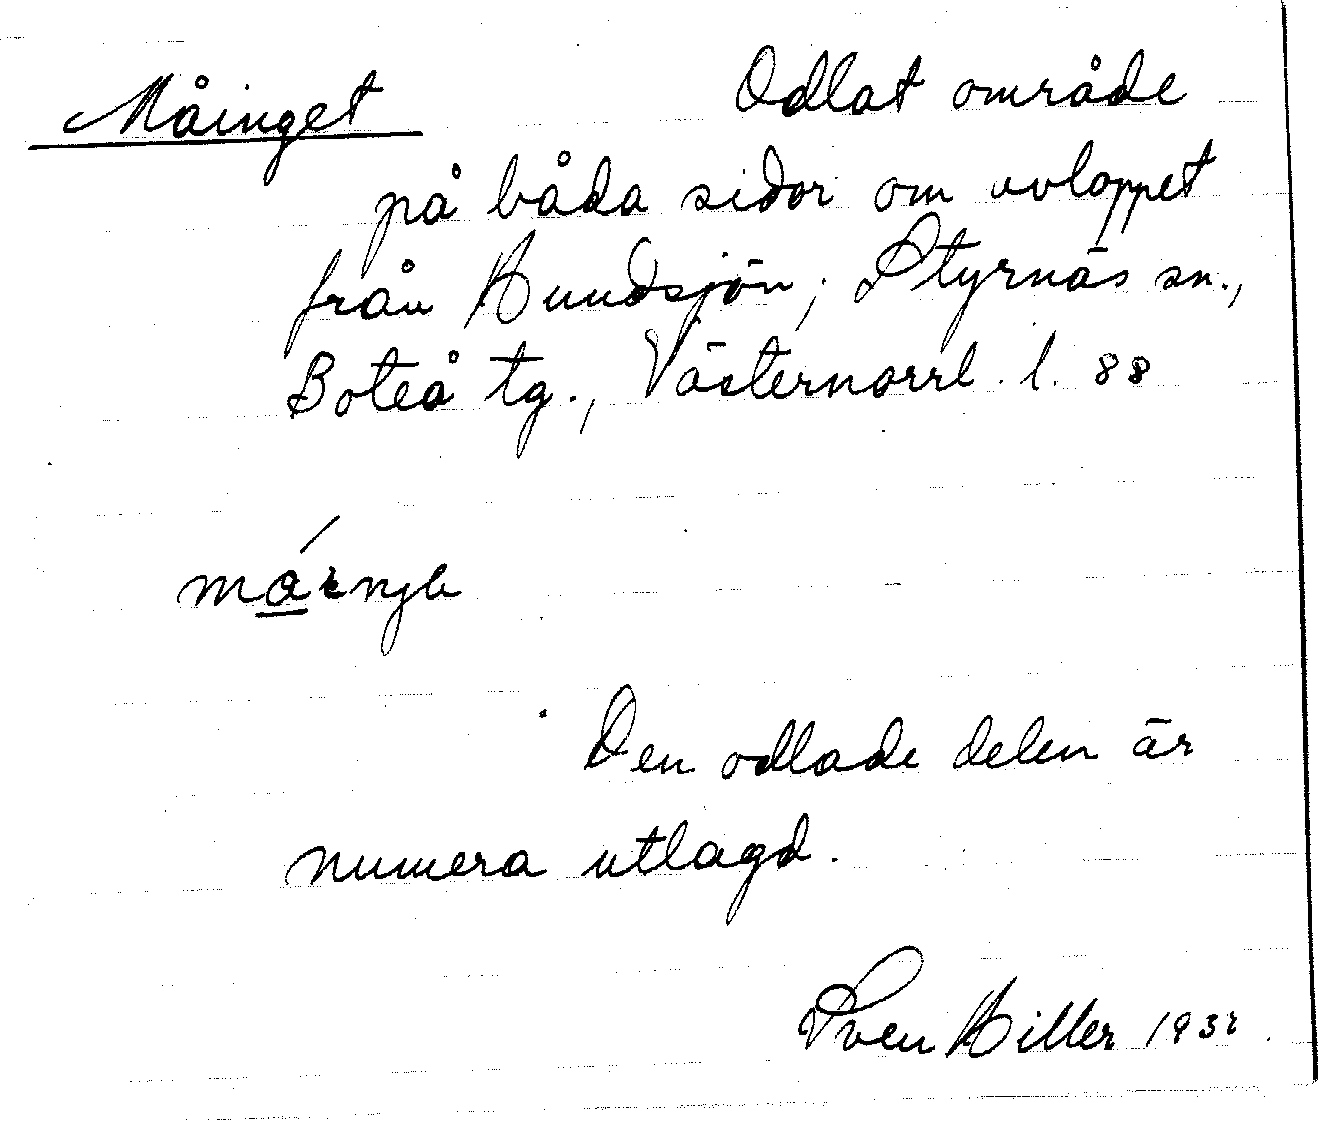 Måinget Odlat område
på båda sidor om avloppet
från Hundsjön, Styrnäs sn.,
Boteå tg., Västernorrl. l. 88
Den odlade delen är
numera utlagd.
Sven Hiller 1932